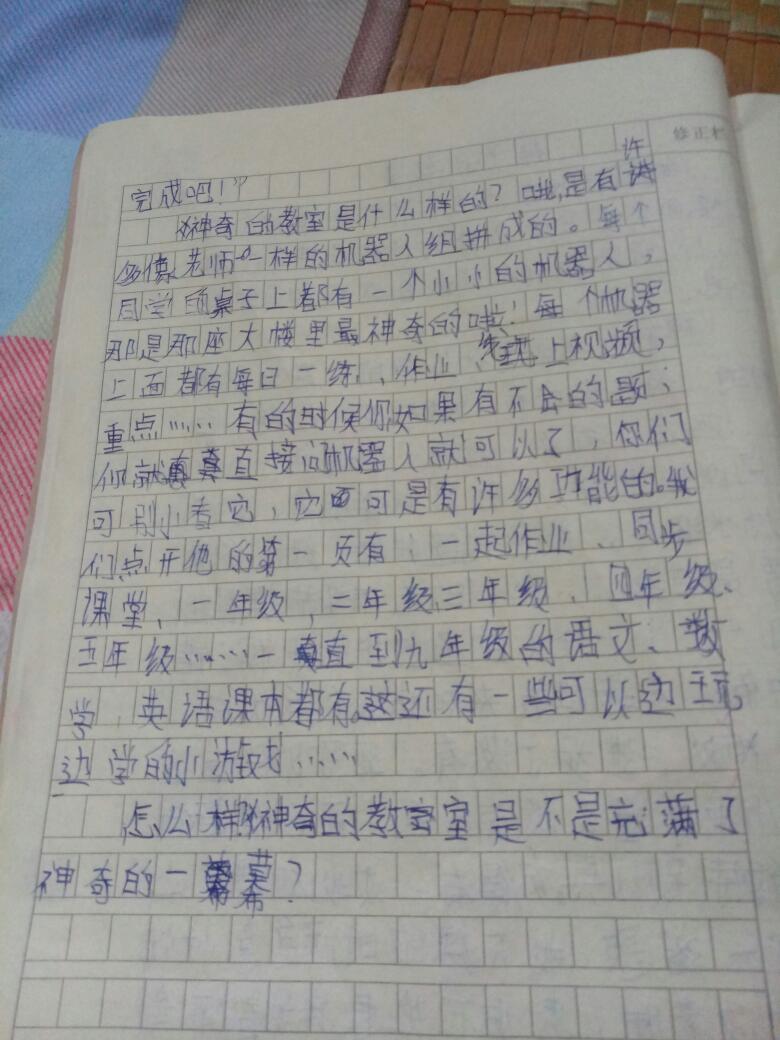 修正栏
完成吧！”
神奇的教室是什么样的？哦，是有许
多像老师一样的机器人组拼成的。每个
同学的桌子上都有一个小小的机器人，
那是那座大楼里最神奇的哦！每个机器
上面都有每日一练、作业、线上视频，
重点……有的时候你如果有不会的题；
你就真直接问机器人就可以了，你们
可别小看它，它可是有许多功能的。我
们点开他的第一页有：一起作业、同步
课堂、一年级，二年级三年级、四年级、
五年级……一直到九年级的语文、数
学、英语课本都有。这还有一些可以边玩，
边学的小游戏……
怎么样？神奇的教室是不是充满了
神奇的一幕？